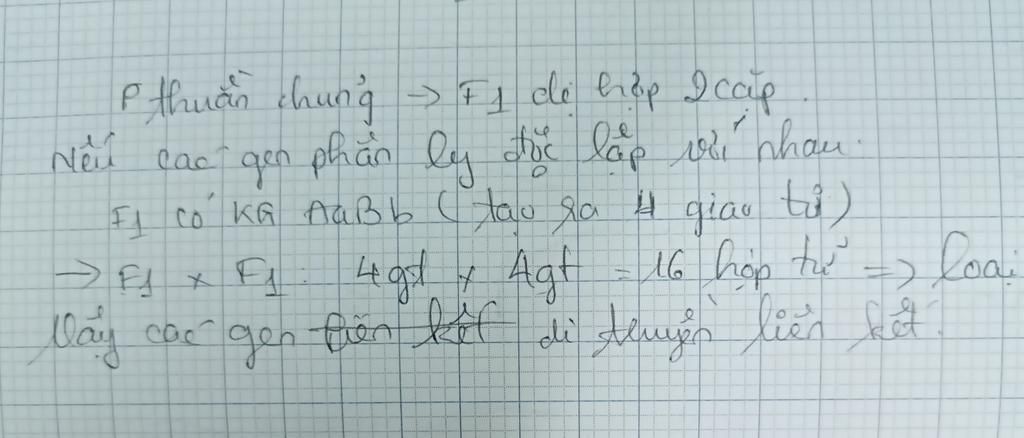 P thuần chủng → F1 dị hợp 2 cặp.
Nếu các gen phân ly độc lập với nhau.
F1 có KG AaBb ( tạo ra 4 giao tử )
→ F1 x F1 : 4gt x 4gt = 16 hợp tử => loại
Vậy các gen liên kết di truyền liên kết.